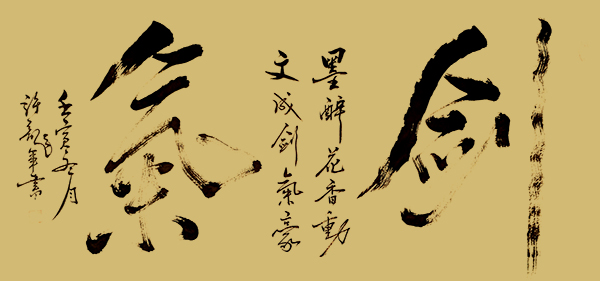 劍
墨醉花香動
文成劍氣豪
氣
壬寅冬月
許年書